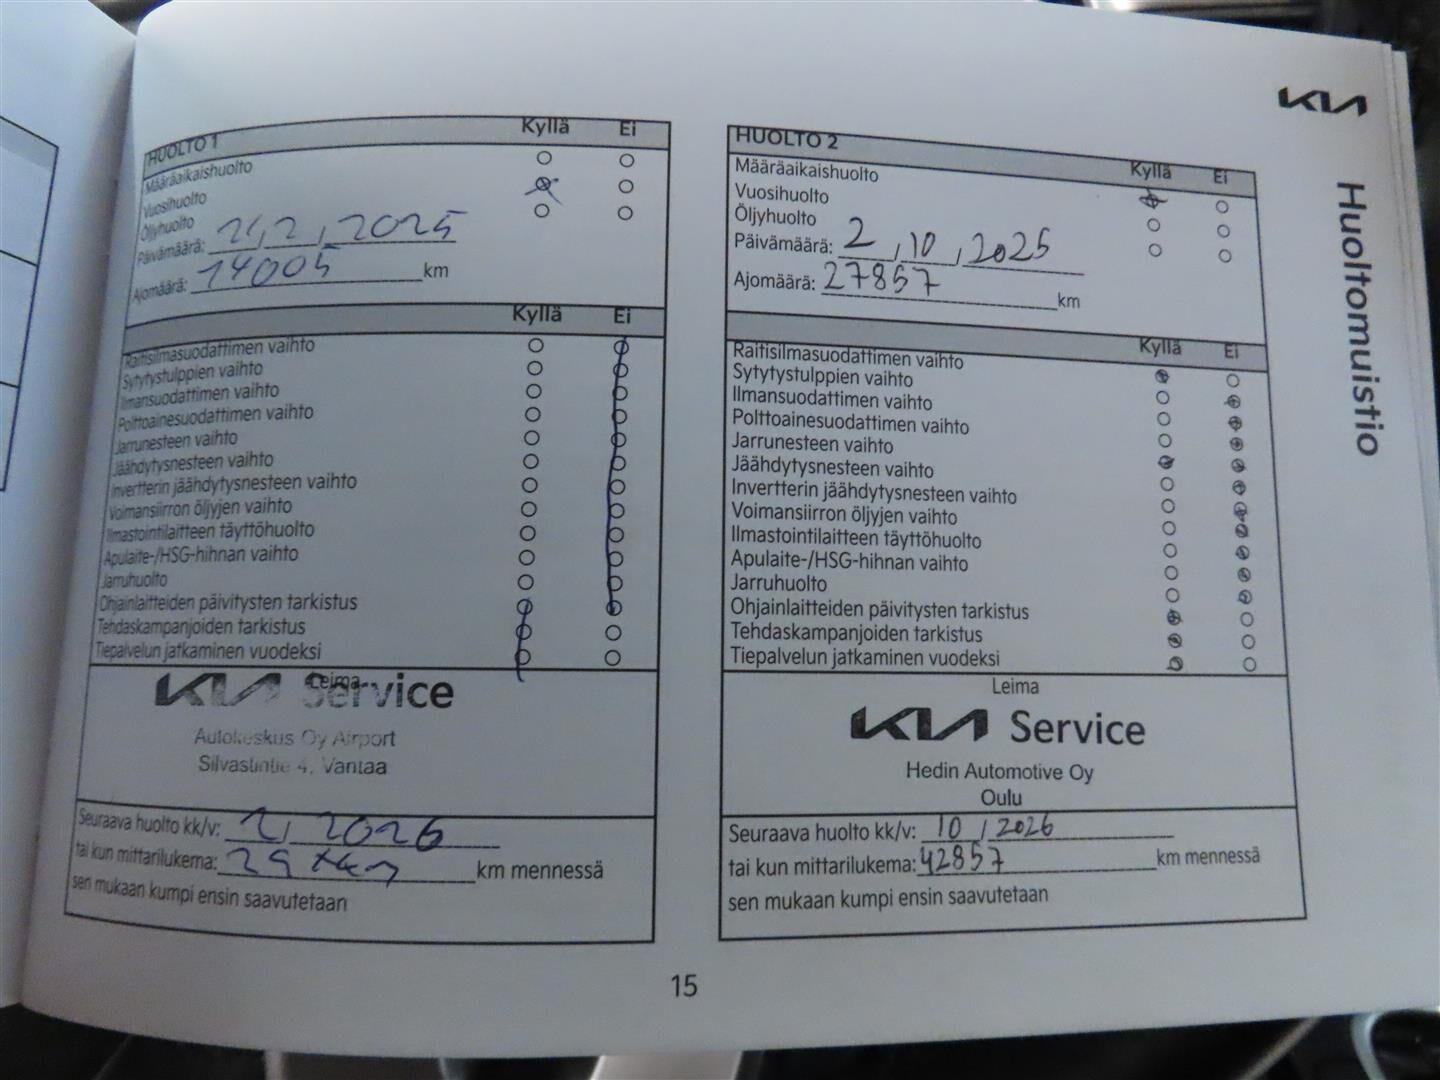 KIA
Huoltomuistio
HUOLTO 1 Kyllä Ei
Määräaikaishuolto
Vuosihuolto
Öljyhuolto
Päivämäärä: 21.2.2025
Ajomäärä: 14005 km
Kyllä Ei
Raitisilmasuodattimen vaihto
Sytytystulppien vaihto
Ilmansuodattimen vaihto
Polttoainesuodattimen vaihto
Jarrunesteen vaihto
Jäähdytysnesteen vaihto
Invertterin jäähdytysnesteen vaihto
Voimansiirron öljyjen vaihto
Ilmastointilaitteen täyttöhuolto
Apulaite-/HSG-hihnan vaihto
Jarruhuolto
Ohjainlaitteiden päivitysten tarkistus
Tehdaskampanjoiden tarkistus
Tiepalvelun jatkaminen vuodeksi
Leima
KIA Service
Autokeskus Oy Airport
Silvastintie 4, Vantaa
Seuraava huolto kk/v: 2, 2026
tai kun mittarilukema: 29 km mennessä
sen mukaan kumpi ensin saavutetaan
HUOLTO 2 Kyllä Ei
Määräaikaishuolto
Vuosihuolto
Öljyhuolto
Päivämäärä: 2.10.2025
Ajomäärä: 27857 km
Kyllä Ei
Raitisilmasuodattimen vaihto
Sytytystulppien vaihto
Ilmansuodattimen vaihto
Polttoainesuodattimen vaihto
Jarrunesteen vaihto
Jäähdytysnesteen vaihto
Invertterin jäähdytysnesteen vaihto
Voimansiirron öljyjen vaihto
Ilmastointilaitteen täyttöhuolto
Apulaite-/HSG-hihnan vaihto
Jarruhuolto
Ohjainlaitteiden päivitysten tarkistus
Tehdaskampanjoiden tarkistus
Tiepalvelun jatkaminen vuodeksi
Leima
KIA Service
Hedin Automotive Oy
Oulu
Seuraava huolto kk/v: 10 / 2026
tai kun mittarilukema: 42857 km mennessä
sen mukaan kumpi ensin saavutetaan
15